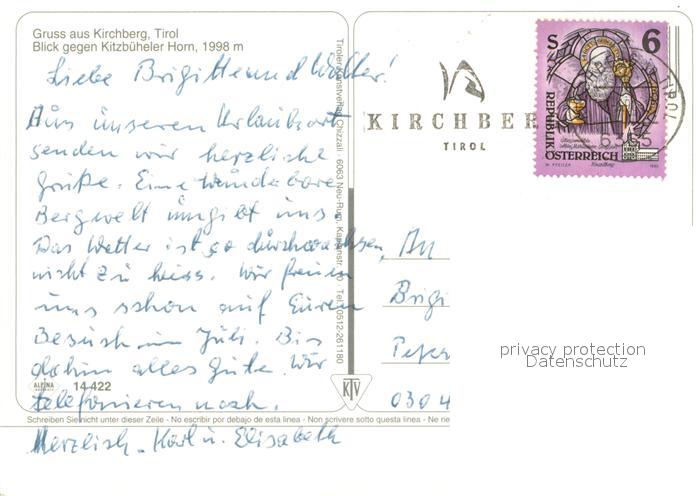 Gruss aus Kirchberg, Tirol
Blick gegen Kitzbüheler Horn, 1998 m
Liebe Brigitte und Walter!
Aus unseren Urlaubsort
senden wir herzliche
Grüße. Eine wunderbare
Bergwelt umgibt uns.
Das Wetter ist so durchwachsen,
nicht zu heiss. Wir freuen
uns schon auf Euren
Besuch im Juli. Bis
dahin alles Gute. Wir
telefonieren noch.
Herzlich. Karl u. Elisabeth
ALPINA
14 422
Schreiben Sie nicht unter dieser Zeile - No escribir por debajo de esta linea - Non scrivere sotto questa linea - Ne rie
Tiroler Kunstverlag Chizzali · 6063 Neu-Rum, Kaplanstr. Tel. 0512-261180
KTV
KIRCHBER
TIROL
S 6
REPUBLIK
ÖSTERREICH
An
Brigi
Peters
0304
privacy protection
Datenschutz